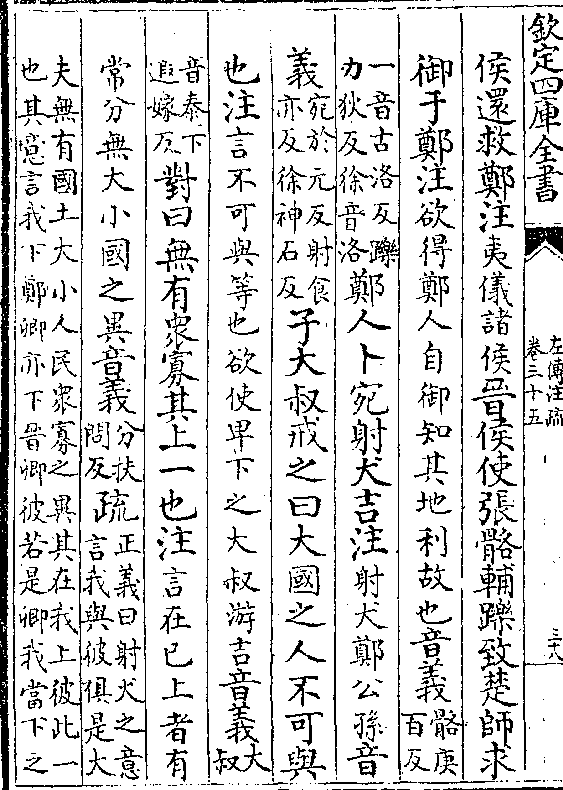 欽定四庫全書
左傳注疏
卷三十五
三十八
侯還救鄭注夷儀諸侯晉侯使張骼輔躒致楚師求
御于鄭注欲得鄭人自御知其地利故也音義骼庚
百反
一音古洛反躒
力狄反徐音洛
鄭人卜宛射犬吉注射犬鄭公孫音
義宛於元反射食
亦反徐神石反
子大叔戒之曰大國之人不可與
也注言不可與等也欲使卑下之大叔游吉音義大
叔
音泰下
遐嫁反
對曰無有衆寡其上一也注言在已上者有
常分無大小國之異音義分扶
問反
疏正義曰射犬之意
言我與彼俱是大
夫無有國土大小人民衆寡之異其在我上彼此一
也其意言我下鄭卿亦下晉卿彼若是卿我當下之